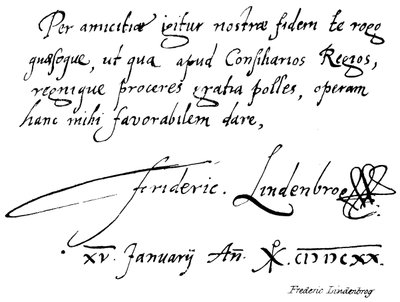 Per amicitiæ igitur nostræ fidem te rogo
quæsoque, ut qua apud Consiliarios Regios,
regnique proceres gratia polles, operam
hanc mihi favorabilem dare,
Frideric. Lindenbrog
xv. Januarij Añ. CIƆ IƆCXX.
Frederic Lindenbrog